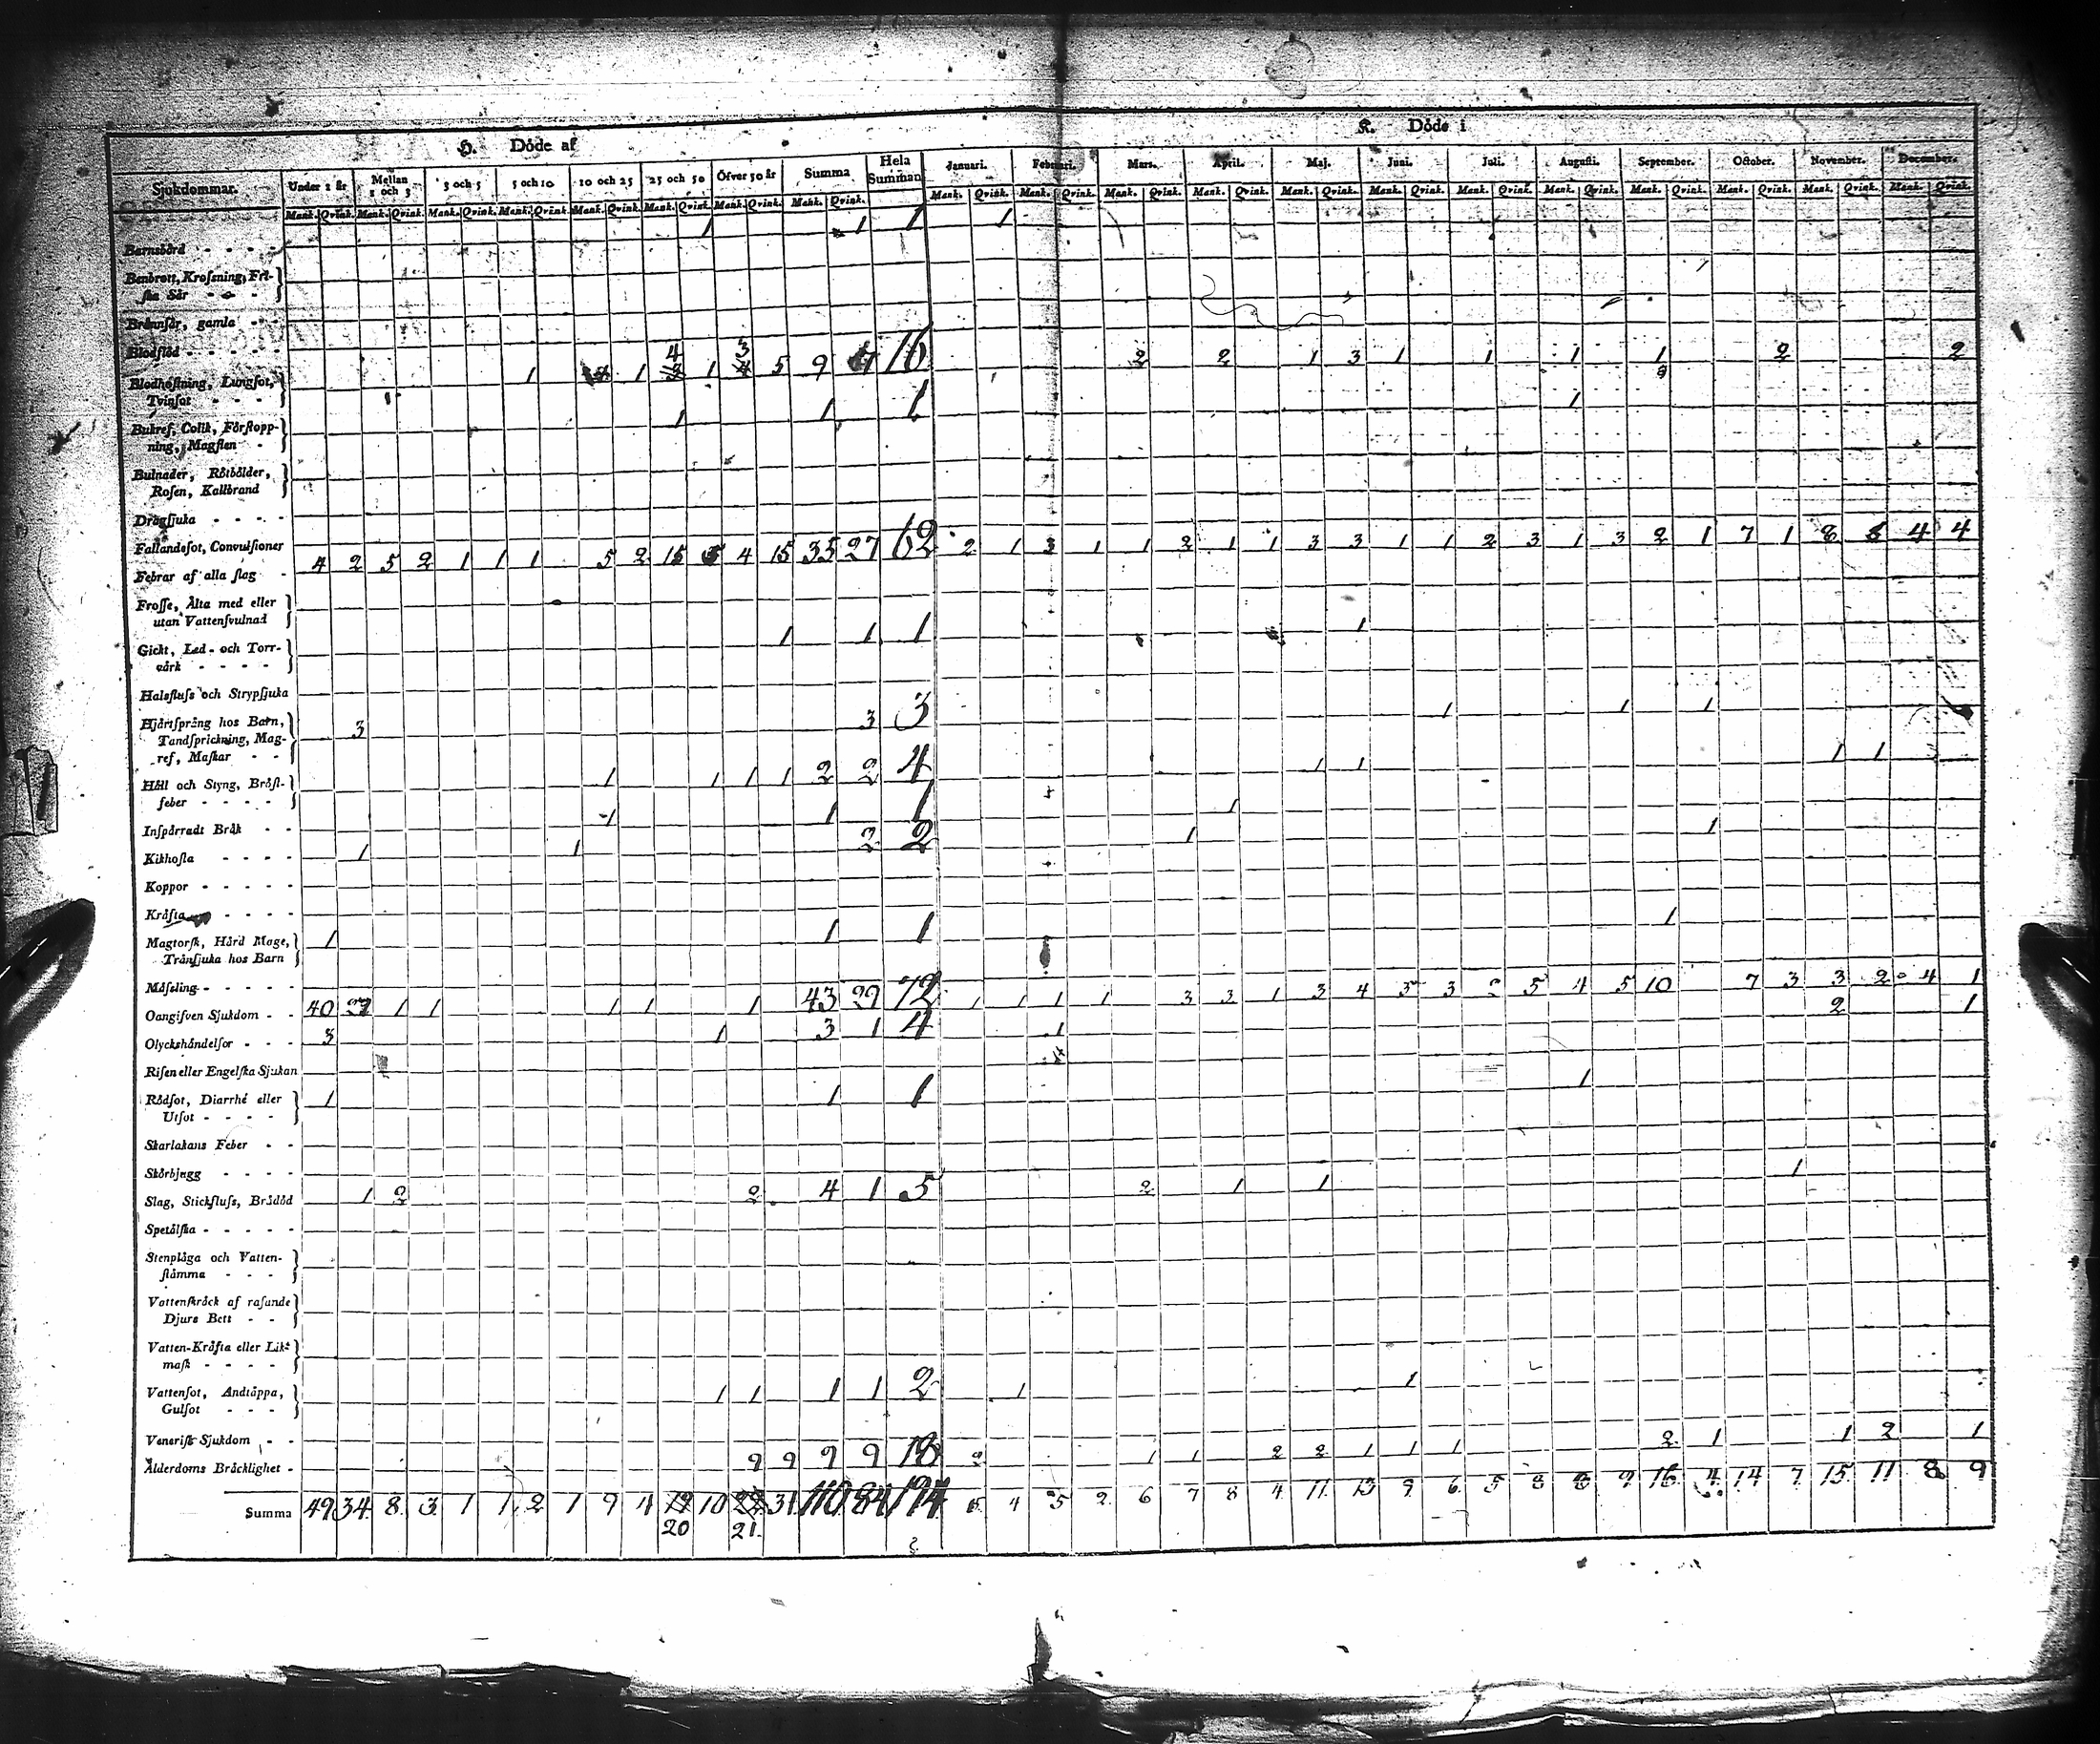 H. Döde af
K. Döde i
Sjukdommar. Under 1 år Mellan 1 och 3 3 och 5 5 och 10 10 och 25 25 och 50 Öfver 50 år Summa Hela Summan Januari. Februari. Mars. April. Maj. Juni. Juli. Augusti. September. October. November. December.
Mank. Qvink. Mank. Qvink. Mank. Qvink. Mank. Qvink. Mank. Qvink. Mank. Qvink. Mank. Qvink. Mank. Qvink. Mank. Qvink. Mank. Qvink. Mank. Qvink. Mank. Qvink. Mank. Qvink. Mank. Qvink. Mank. Qvink. Mank. Qvink. Mank. Qvink. Mank. Qvink. Mank. Qvink. Mank. Qvink.
Barnsbörd - - - - 1 1 1 1
Benbrott, Krosning, Fri-
ska Sår - - -
Brännsår, gamla - -
Blodflöd - - - - -
Blodhostning, Lungsot,
Tvinsot - - - - 1 1 4 1 3 5 9 7 16 2 2 1 3 1 1 1 1 2 2
Bukref, Colik, Förstopp-
ning, Magsten - 1 1 1 1
Bulnader, Rötbölder,
Rosen, Kallbrand
Dragsjuka - - - -
Fallandesot, Convulsioner
Febrar af alla slag - 4 2 5 2 1 1 1 5 2 15 5 4 15 35 27 62 2 1 3 1 1 2 1 1 3 3 1 1 2 3 1 3 2 1 7 1 8 8 4 4
Frosse, Älta med eller
utan Vattensvulnad
Gickt, Led- och Torr-
värk - - - - 1 1 1 1
Halsfluss och Strypsjuka
Hjärtspräng hos Barn,
Tandsprickning, Mag-
ref, Maskar - - 3 3 3 1 1 1
Håll och Styng, Bröst-
feber - - - - 1 1 1 1 2 2 4 1 1 1 1
Inspärradt Bråk - - 1 1 1 1
Kikhosta - - - - 1 1 2 2 1 1
Koppor - - - - -
Kräfta - - - -
Magtorsk, Hård Mage,
Trånsjuka hos Barn 1 1 1 1
Mäsling - - - - -
Oangifven Sjukdom - - 40 27 1 1 1 1 1 43 29 72 1 1 1 1 3 3 1 3 4 3 3 2 5 4 5 10 7 3 3 2 4 1
Olyckshändelsor - - - 3 1 3 1 4 1 2 1
Risen eller Engelska Sjukan
Rödsot, Diarrhé eller
Utsot - - - - 1 1 1 1
Skarlakans Feber - -
Skörbjugg - - - -
Slag, Stickfluss, Brådöd 1 2 2 4 1 5 2 1 1 1
Spetälska - - - - -
Stenplåga och Vatten-
stämma - - - -
Vattenskräck af rasande
Djurs Bett - -
Vatten-Kräfta eller Lik-
mask - - - -
Vattensot, Andtäppa,
Gulsot - - - 1 1 1 1 2 1 1
Venerisk Sjukdom - -
Ålderdoms Bräcklighet - 9 9 9 9 18 2 1 1 2 2 1 1 1 2 1 1 2 1
Summa 49 34 8 3 1 1 2 1 9 4 19 10 22 31 110 84 194 5 4 5 2 6 7 8 4 11 13 9 6 5 8 8 9 16 4 14 7 15 11 8 9
20 21